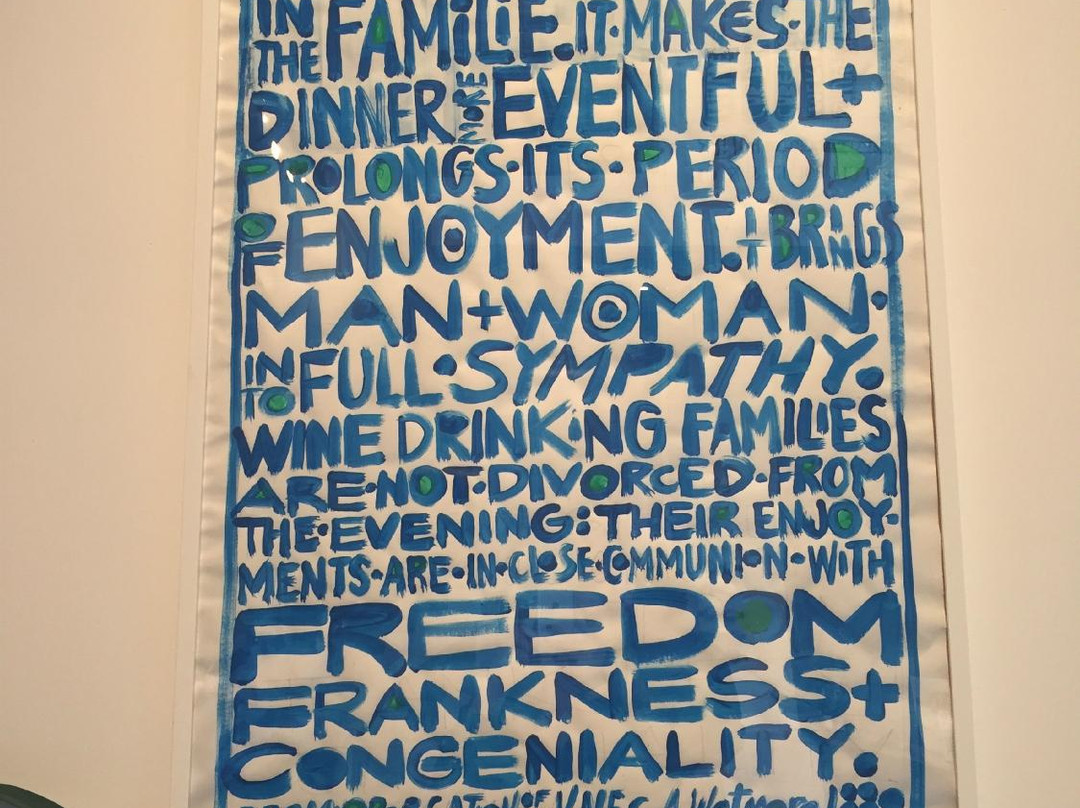 IN THE FAMiLiE. IT·MAKES·THE
DINNER MORE EVENTFUL+
PROLONGS·ITS·PERIOD
OF ENJOYMENT.+BRiNGS
MAN+WOMAN·
INTO FULL·SYMPATHY.
WINE DRINKiNG FAMILIES
ARE·NOT·DIVORCED·FROM
THE·EVENING:THEIR ENJOY·
MENTS·ARE·IN·CLOSE·COMMUNION·WITH
FREEDOM
FRANKNESS+
CONGENIALITY.
OF A. Wetmore 1880